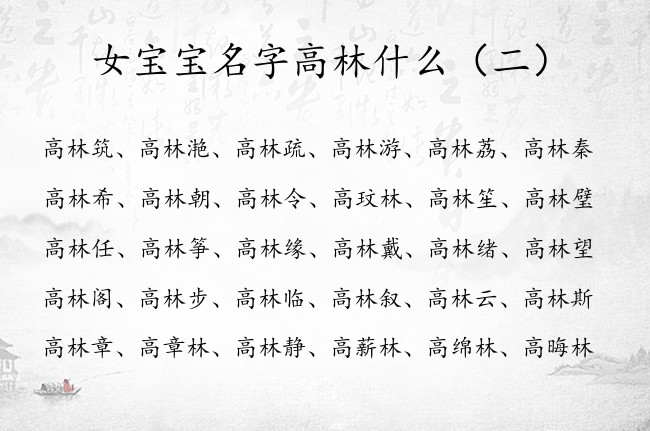 女宝宝名字高林什么（二）
高林筑、高林滟、高林疏、高林游、高林荔、高林秦
高林希、高林朝、高林令、高玟林、高林笙、高林璧
高林任、高林筝、高林缘、高林戴、高林绪、高林望
高林阁、高林步、高林临、高林叙、高林云、高林斯
高林章、高章林、高林静、高薪林、高绵林、高晦林